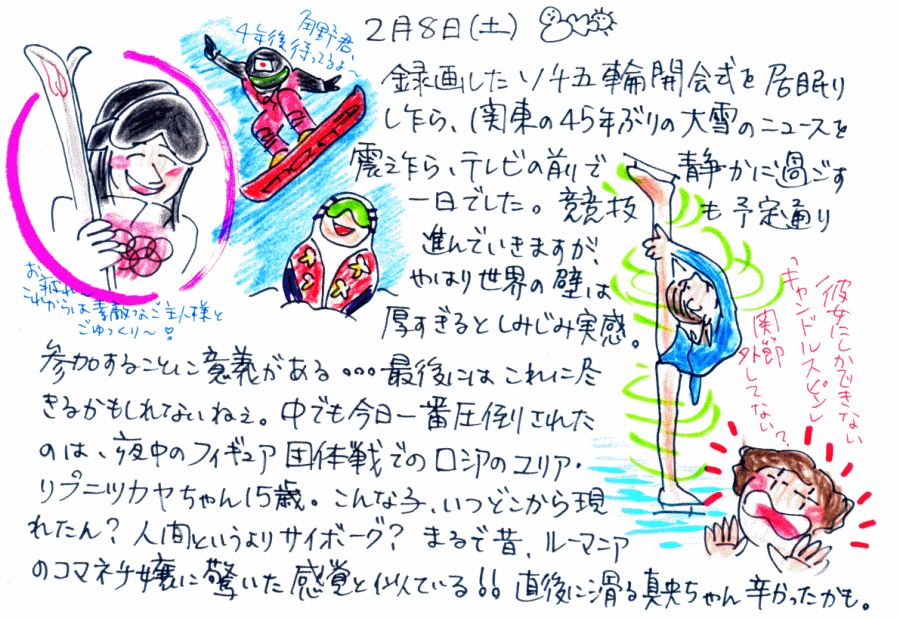 2月8日(土)
角野君、
4年後待ってるよ〜
録画したソチ五輪開会式を居眠り
したら、関東の45年ぶりの大雪のニュースを
震えたら、テレビの前で静かに過ごす
一日でした。競技も予定通り
進んでいきますが、
やはり世界の壁は
厚すぎるとしみじみ実感。
参加することに意義がある...最後にはこれに尽
きるかもしれてないねぇ。中でも今日一番圧倒された
のは、夜中のフィギュア団体戦でのロシアのユリア・
リプニツカヤちゃん15歳。こんな子、いつどこから現
れたん？人間というよりサイボーグ？まるで昔、ルーマニア
のコマネチ嬢に驚いた感覚と似ている!!直後に滑る真央ちゃん辛かったかも。
お疲れ〜
これからは素敵なご主人様と
ごゆっくり〜♡
彼女にしかできない
「キャンドルスピン」
関節
外してない？